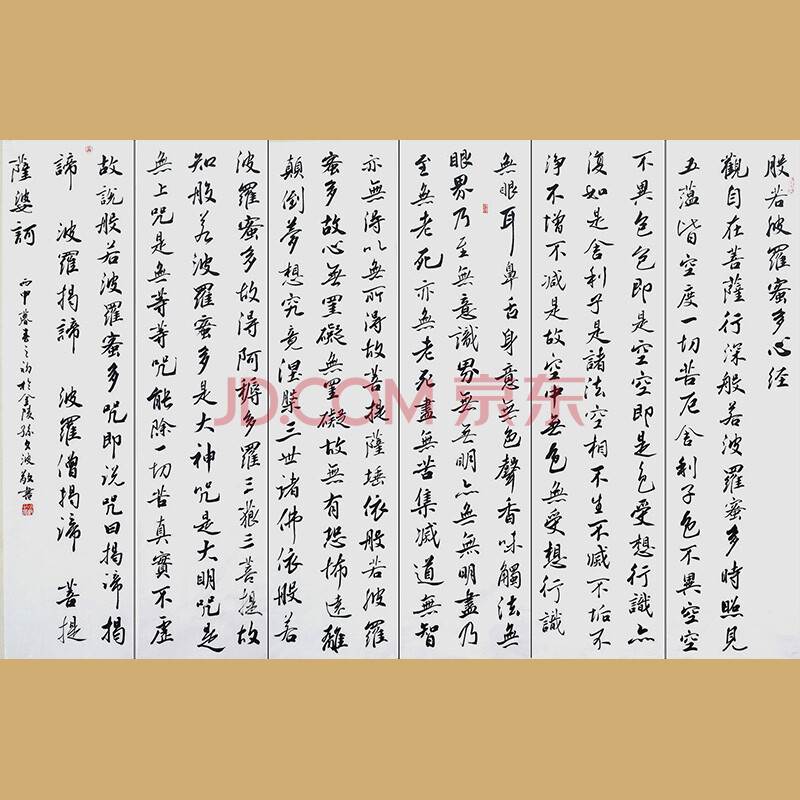 般若波羅蜜多心経
觀自在菩薩行深般若波羅蜜多時照見
五蘊皆空度一切苦厄舍利子色不異空空
不異色色即是空空即是色受想行識亦
復如是舍利子是諸法空相不生不滅不垢不
淨不增不減是故空中無色無受想行識
無眼耳鼻舌身意無色聲香味觸法無
眼界乃至無意識界無無明亦無無明盡乃
至無老死亦無老死盡無苦集滅道無智
亦無得以無所得故菩提薩埵依般若波羅
蜜多故心無罣礙無罣礙故無有恐怖遠離
顛倒夢想究竟涅槃三世諸佛依般若
波羅蜜多故得阿耨多羅三藐三菩提故
知般若波羅蜜多是大神咒是大明咒是
無上咒是無等等咒能除一切苦真實不虛
故說般若波羅蜜多咒即说咒曰揭諦揭
諦 波羅揭諦 波羅僧揭諦 菩提
薩婆訶
丙申暮春之初於金陵孫久波敬書
JD.COM 京东